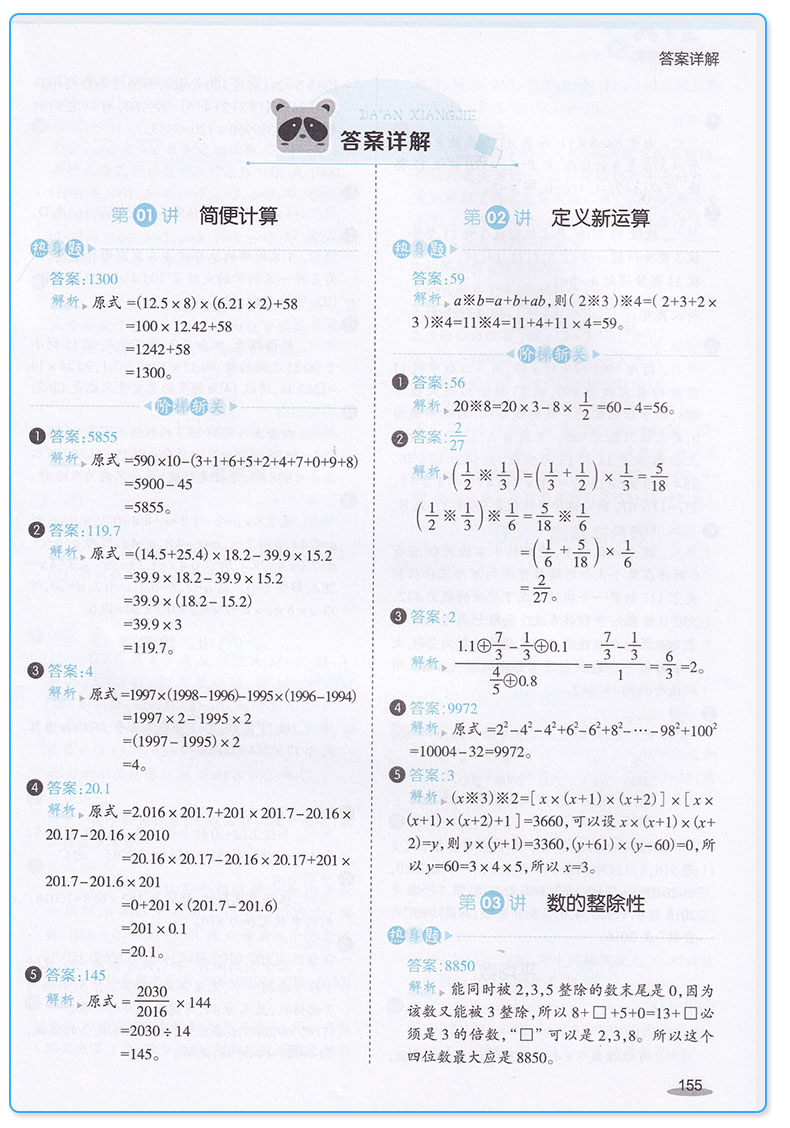 答案详解
DA'AN XIANGJIE
答案详解
第 01 讲 简便计算
热身题
答案:1300
解析 原式 =(12.5×8)×(6.21×2)+58
=100×12.42+58
=1242+58
=1300。
阶梯斩关
1 答案:5855
解析 原式 =590×10-(3+1+6+5+2+4+7+0+9+8)
=5900-45
=5855。
2 答案:119.7
解析 原式 =(14.5+25.4)×18.2-39.9×15.2
=39.9×18.2-39.9×15.2
=39.9×(18.2-15.2)
=39.9×3
=119.7。
3 答案:4
解析 原式 =1997×(1998-1996)-1995×(1996-1994)
=1997×2-1995×2
=(1997-1995)×2
=4。
4 答案:20.1
解析 原式 =2.016×201.7+201×201.7-20.16×
20.17-20.16×2010
=20.16×20.17-20.16×20.17+201×
201.7-201.6×201
=0+201×(201.7-201.6)
=201×0.1
=20.1。
5 答案:145
解析 原式 = 2030/2016 ×144
=2030÷14
=145。
第 02 讲 定义新运算
热身题
答案:59
解析 a※b=a+b+ab,则(2※3)※4=(2+3+2×
3)※4=11※4=11+4+11×4=59。
阶梯斩关
1 答案:56
解析 20※8=20×3-8× 1/2 =60-4=56。
2 答案: 2/27
解析 (1/2 ※ 1/3)=(1/3 + 1/2)× 1/3 = 5/18
(1/2 ※ 1/3)※ 1/6 = 5/18 ※ 1/6
=(1/6 + 5/18)× 1/6
= 2/27。
3 答案:2
解析 (1.1⊕7/3 - 1/3⊕0.1)/(4/5⊕0.8) = (7/3 - 1/3)/1 = 6/3 =2。
4 答案:9972
解析 原式 =2²-4²-4²+6²-6²+8²-…-98²+100²
=10004-32=9972。
5 答案:3
解析 (x※3)※2=[x×(x+1)×(x+2)]×[x×
(x+1)×(x+2)+1]=3660,可以设 x×(x+1)×(x+
2)=y,则 y×(y+1)=3360,(y+61)×(y-60)=0,所
以 y=60=3×4×5,所以 x=3。
第 03 讲 数的整除性
热身题
答案:8850
解析 能同时被 2,3,5 整除的数末尾是 0,因为
该数又能被 3 整除,所以 8+□+5+0=13+□必
须是 3 的倍数,“□”可以是 2,3,8。所以这个
四位数最大应是 8850。
155